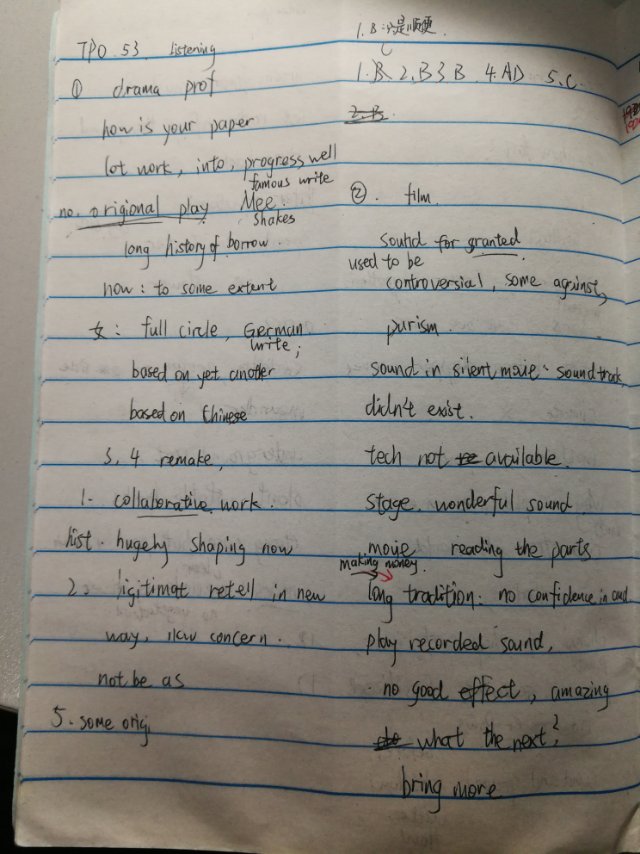 TPO 53 listening
① drama prof
how is your paper
lot work, into, progress well
famous write
no. origional play Mee
Shakes
long history of borrow.
now: to some extent
女: full circle, German
write;
based on yet another
based on Chinese
3, 4 remake,
1. collaborative work.
hist. hugely shaping now
2. ligitimat retell in new
way, new concern.
not be as
5. some orig
1. B: 只是顺便.
1. B. 2. B 3 B. 4. AD 5. C.
2. B.
②. film.
sound for granted
used to be
controversial, some against,
purism.
sound in silent movie: soundtrack
didn't exist.
tech not available.
stage. wonderful sound
movie reading the parts
making money.
long tradition: no confidence in aud.
play recorded sound,
no good effect, amazing
what the next?
bring more